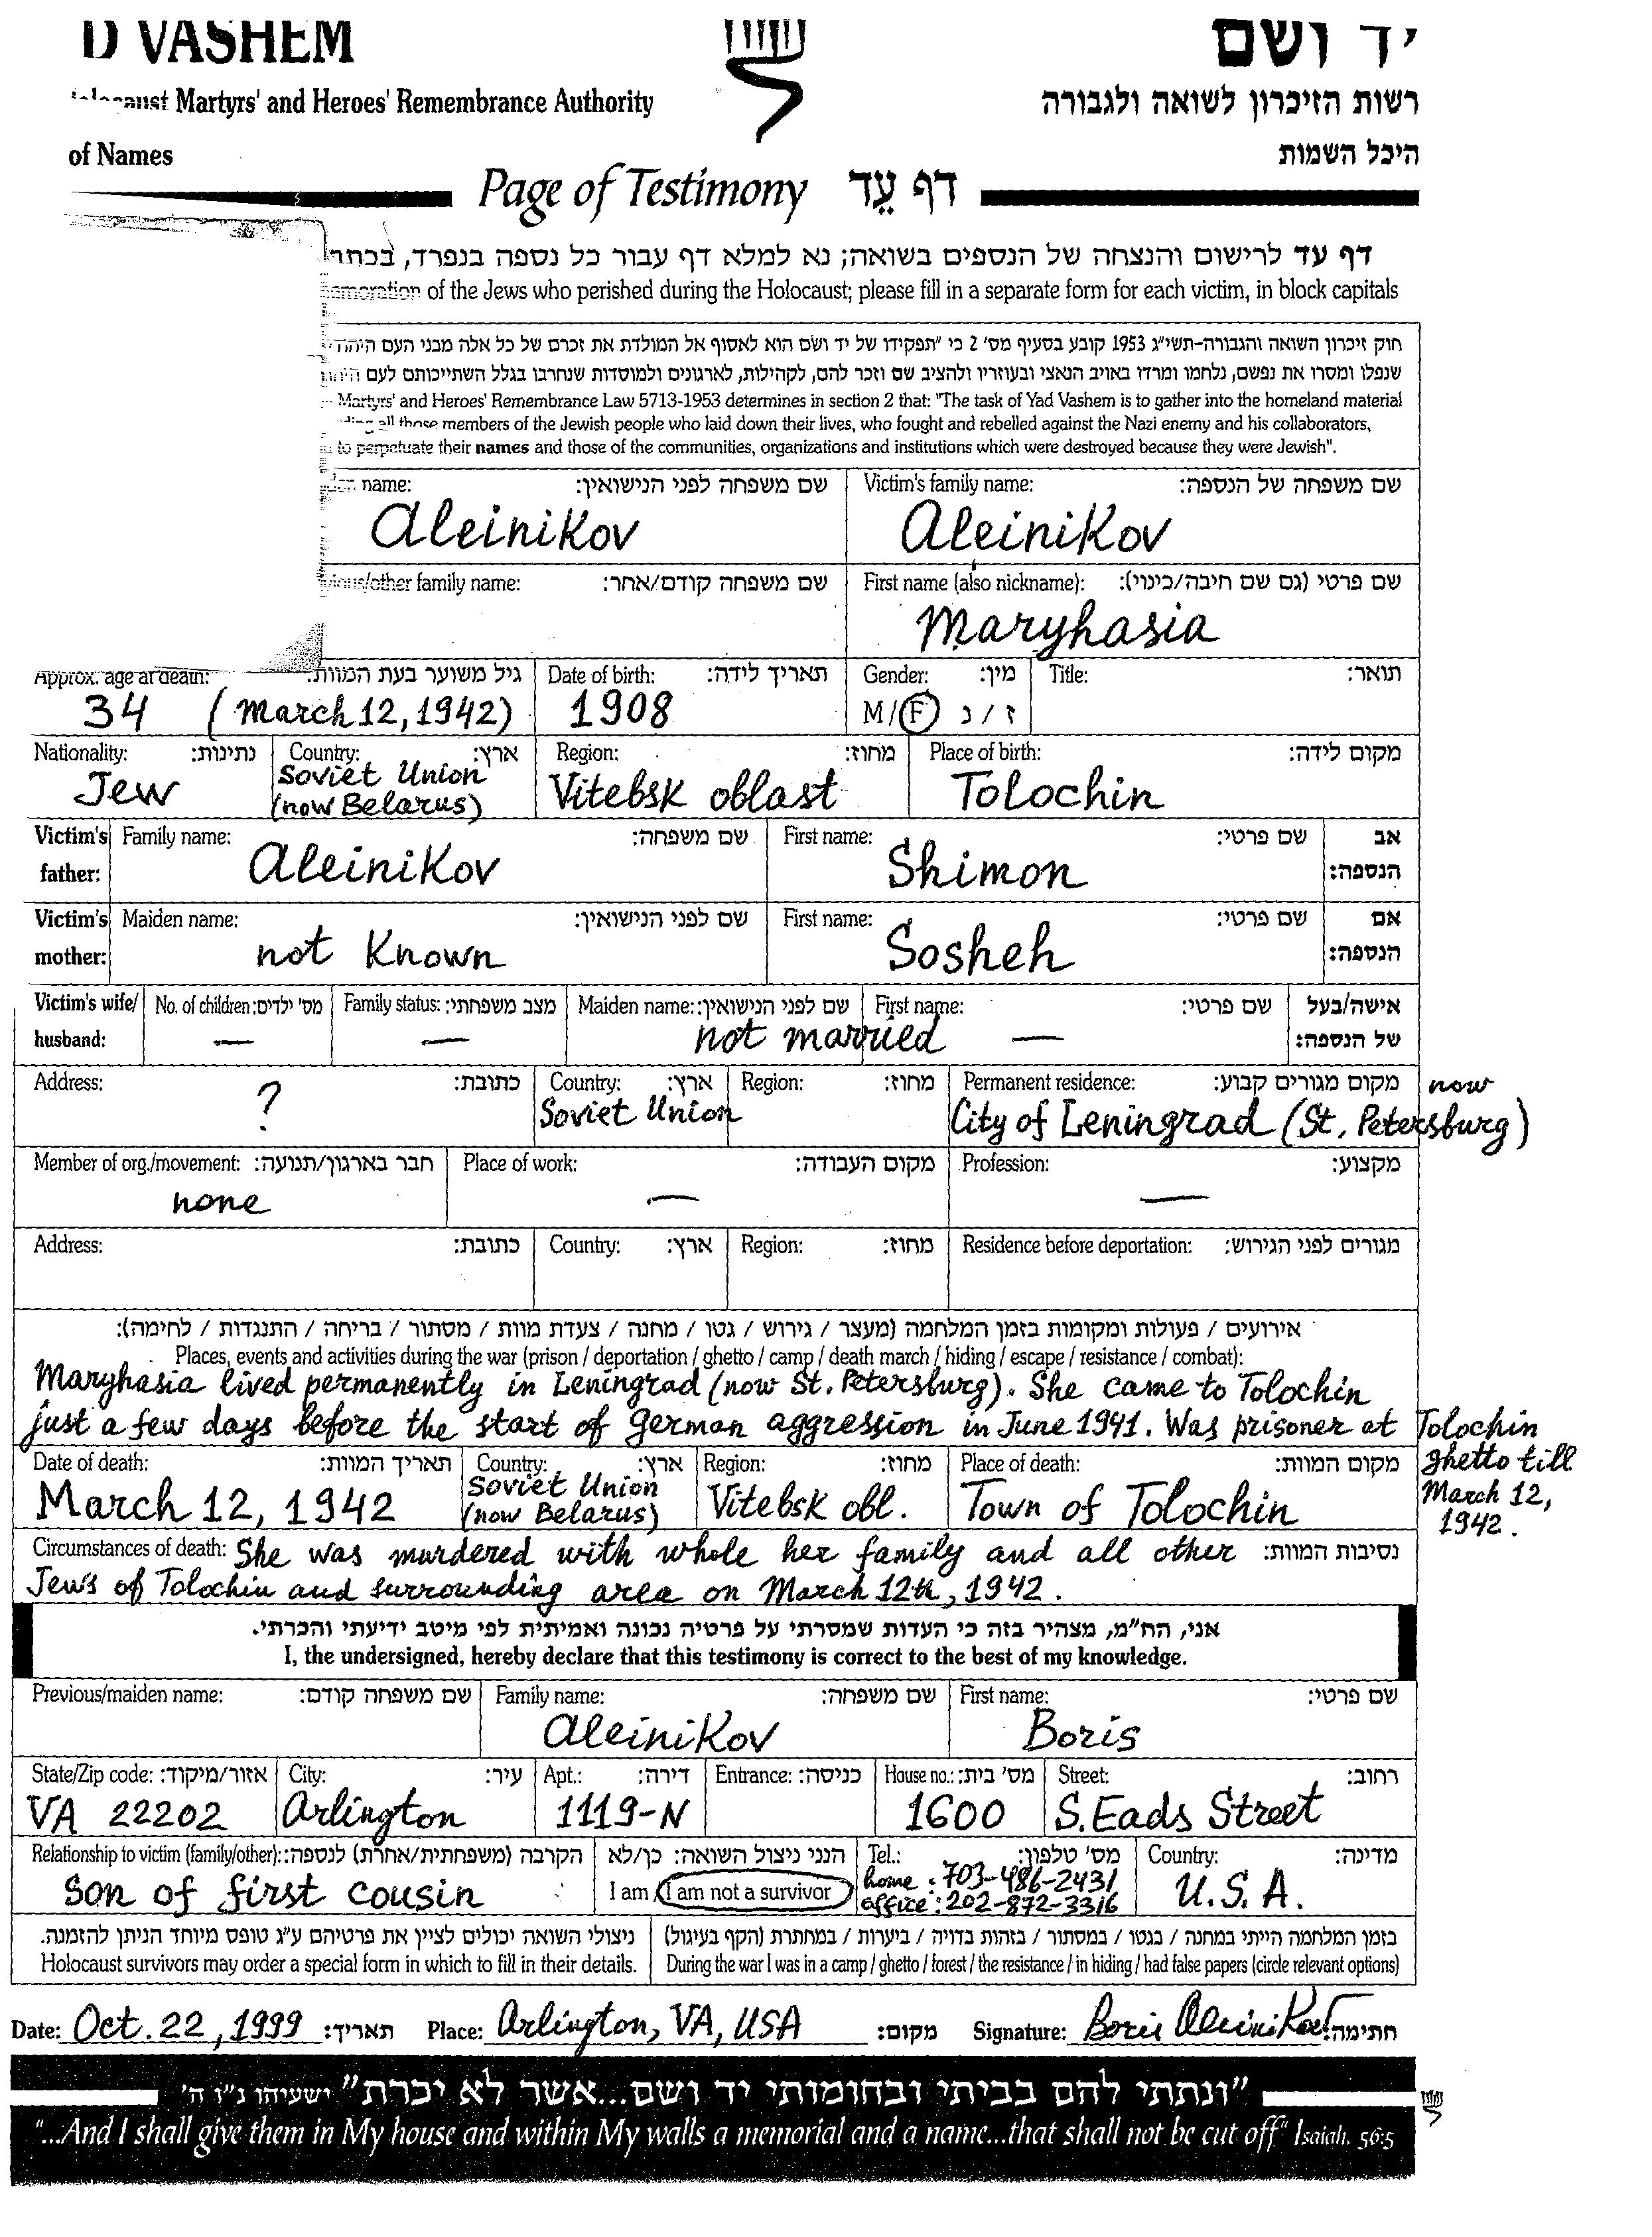 D VASHEM
יד ושם
Martyrs' and Heroes' Remembrance Authority
רשות הזיכרון לשואה ולגבורה
of Names
היכל השמות
Page of Testimony דף עֵד
דף עד לרישום והנצחה של הנספים בשואה; נא למלא דף עבור כל נספה בנפרד, בכתב
of the Jews who perished during the Holocaust; please fill in a separate form for each victim, in block capitals
חוק זיכרון השואה והגבורה-תשי"ג 1953 קובע בסעיף מס' 2 כי "תפקידו של יד ושם הוא לאסוף אל המולדת את זכרם של כל אלה מבני העם
שנפלו ומסרו את נפשם, נלחמו ומרדו באויב הנאצי ובעוזריו ולהציב שם וזכר להם, לקהילות, לארגונים ולמוסדות שנחרבו בגלל השתייכותם לעם
Martyrs' and Heroes' Remembrance Law 5713-1953 determines in section 2 that: "The task of Yad Vashem is to gather into the homeland material
all those members of the Jewish people who laid down their lives, who fought and rebelled against the Nazi enemy and his collaborators,
to perpetuate their names and those of the communities, organizations and institutions which were destroyed because they were Jewish".
name: שם משפחה לפני הנישואין: Victim's family name: שם משפחה של הנספה:
Aleinikov Aleinikov
family name: שם משפחה קודם/אחר: First name (also nickname): שם פרטי (גם שם חיבה/כינוי):
Maryhasia
Approx. age at death: גיל משוער בעת המוות: Date of birth: תאריך לידה: Gender: מין: Title: תואר:
34 (March 12, 1942) 1908 M/F ז/נ
Nationality: נתינות: Country: ארץ: Region: מחוז: Place of birth: מקום לידה:
Jew Soviet Union Vitebsk oblast Tolochin
(now Belarus)
Victim's Family name: שם משפחה: First name: שם פרטי: אב
father: Aleinikov Shimon הנספה:
Victim's Maiden name: שם לפני הנישואין: First name: שם פרטי: אם
mother: not known Sosheh הנספה:
Victim's wife/ No. of children: מס' ילדים: Family status: מצב משפחתי: Maiden name: שם לפני הנישואין: First name: שם פרטי: אישה/בעל
husband: — — not married — של הנספה:
Address: כתובת: Country: ארץ: Region: מחוז: Permanent residence: מקום מגורים קבוע: now
? Soviet Union City of Leningrad (St. Petersburg)
Member of org./movement: חבר בארגון/תנועה: Place of work: מקום העבודה: Profession: מקצוע:
none — —
Address: כתובת: Country: ארץ: Region: מחוז: Residence before deportation: מגורים לפני הגירוש:
אירועים / פעולות ומקומות בזמן המלחמה (מעצר / גירוש / גטו / מחנה / צעדת מוות / מסתור / בריחה / התנגדות / לחימה):
Places, events and activities during the war (prison / deportation / ghetto / camp / death march / hiding / escape / resistance / combat):
Maryhasia lived permanently in Leningrad (now St. Petersburg). She came to Tolochin
just a few days before the start of German aggression in June 1941. Was prisoner at Tolochin
ghetto till
March 12,
1942.
Date of death: תאריך המוות: Country: ארץ: Region: מחוז: Place of death: מקום המוות:
March 12, 1942 Soviet Union Vitebsk obl. Town of Tolochin
(now Belarus)
Circumstances of death: She was murdered with whole her family and all other נסיבות המוות:
Jews of Tolochin and surrounding area on March 12th, 1942.
אני, הח"מ, מצהיר בזה כי העדות שמסרתי על פרטיה נכונה ואמיתית לפי מיטב ידיעתי והכרתי.
I, the undersigned, hereby declare that this testimony is correct to the best of my knowledge.
Previous/maiden name: שם משפחה קודם: Family name: שם משפחה: First name: שם פרטי:
Aleinikov Boris
State/Zip code: אזור/מיקוד: City: עיר: Apt.: דירה: Entrance: כניסה: House no.: מס' בית: Street: רחוב:
VA 22202 Arlington 1119-N 1600 S. Eads Street
Relationship to victim (family/other): הקרבה (משפחתית/אחרת) לנספה: הנני ניצול השואה: כן/לא Tel.: מס' טלפון: Country: מדינה:
Son of first cousin I am / I am not a survivor home: 703-486-2431 U.S.A.
office: 202-872-3316
ניצולי השואה יכולים לציין את פרטיהם ע"ג טופס מיוחד הניתן להזמנה. בזמן המלחמה הייתי במחנה / בגטו / במסתור / בזהות בדויה / ביערות / במחתרת (הקף בעיגול)
Holocaust survivors may order a special form in which to fill in their details. During the war I was in a camp / ghetto / forest / the resistance / in hiding / had false papers (circle relevant options)
Date: Oct. 22, 1999 תאריך: Place: Arlington, VA, USA מקום: Signature: Boris Aleinikov חתימה:
"ונתתי להם בביתי ובחומותי יד ושם...אשר לא יכרת" ישעיהו נ"ו ה'
"...And I shall give them in My house and within My walls a memorial and a name...that shall not be cut off" Isaiah. 56:5